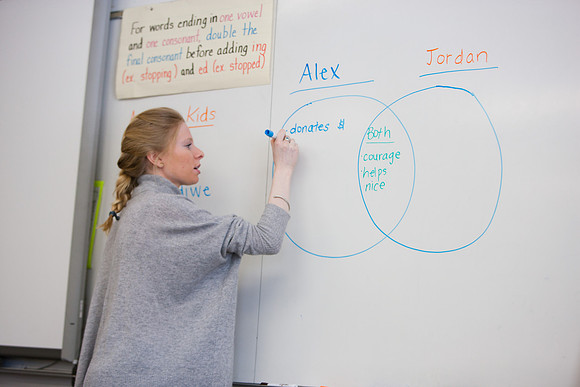 For words ending in one vowel
and one consonant, double the
final consonant before adding ing
(ex. stopping) and ed (ex stopped)
Kids
Alex
Jordan
donates $
Both
courage
helps
nice